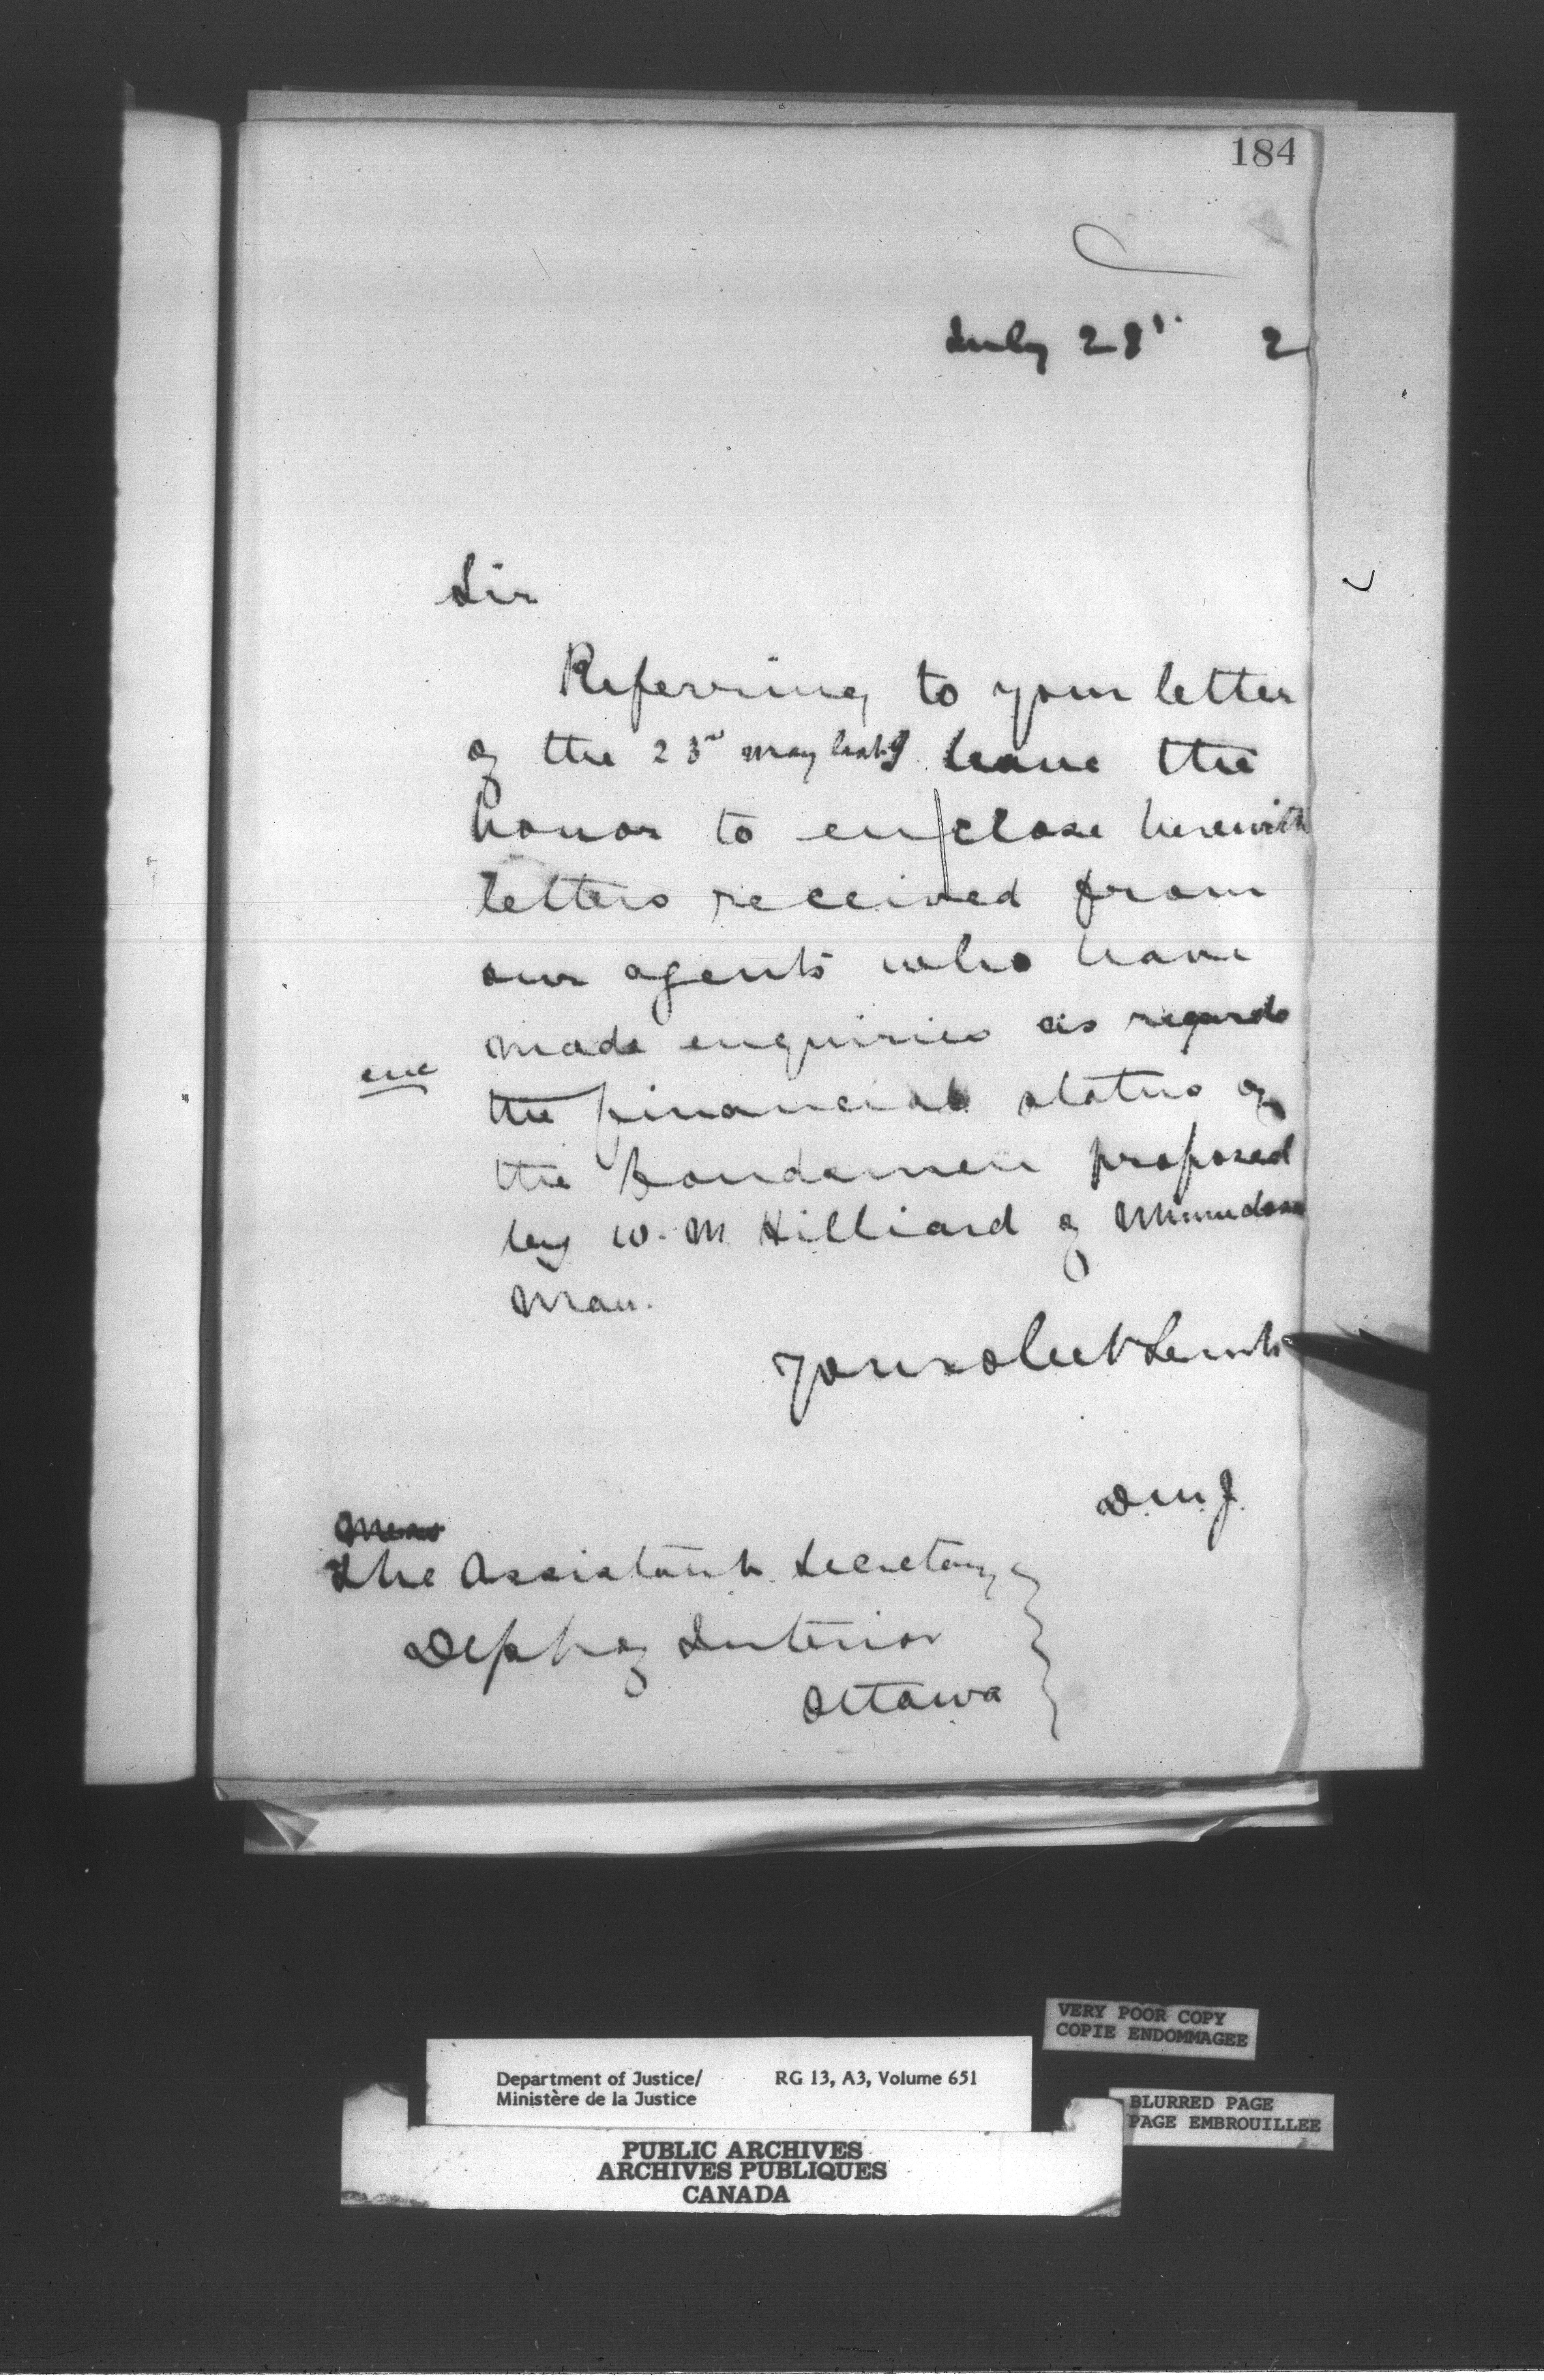 184
July 28th 2
Sir
Referring to your letter
of the 23rd May last I have the
honor to enclose herewith
letters received from
our agents who have
made enquiries as regards
enc
the financial status of
the bondsmen proposed
by W. M Hilliard of Minnedosa
Man.
Your obedt Servt
D.M.J.
The Assistant Secretary
Dept of Interior
Ottawa
VERY POOR COPY
COPIE ENDOMMAGEE
Department of Justice/ RG 13, A3, Volume 651
Ministère de la Justice
BLURRED PAGE
PAGE EMBROUILLEE
PUBLIC ARCHIVES
ARCHIVES PUBLIQUES
CANADA